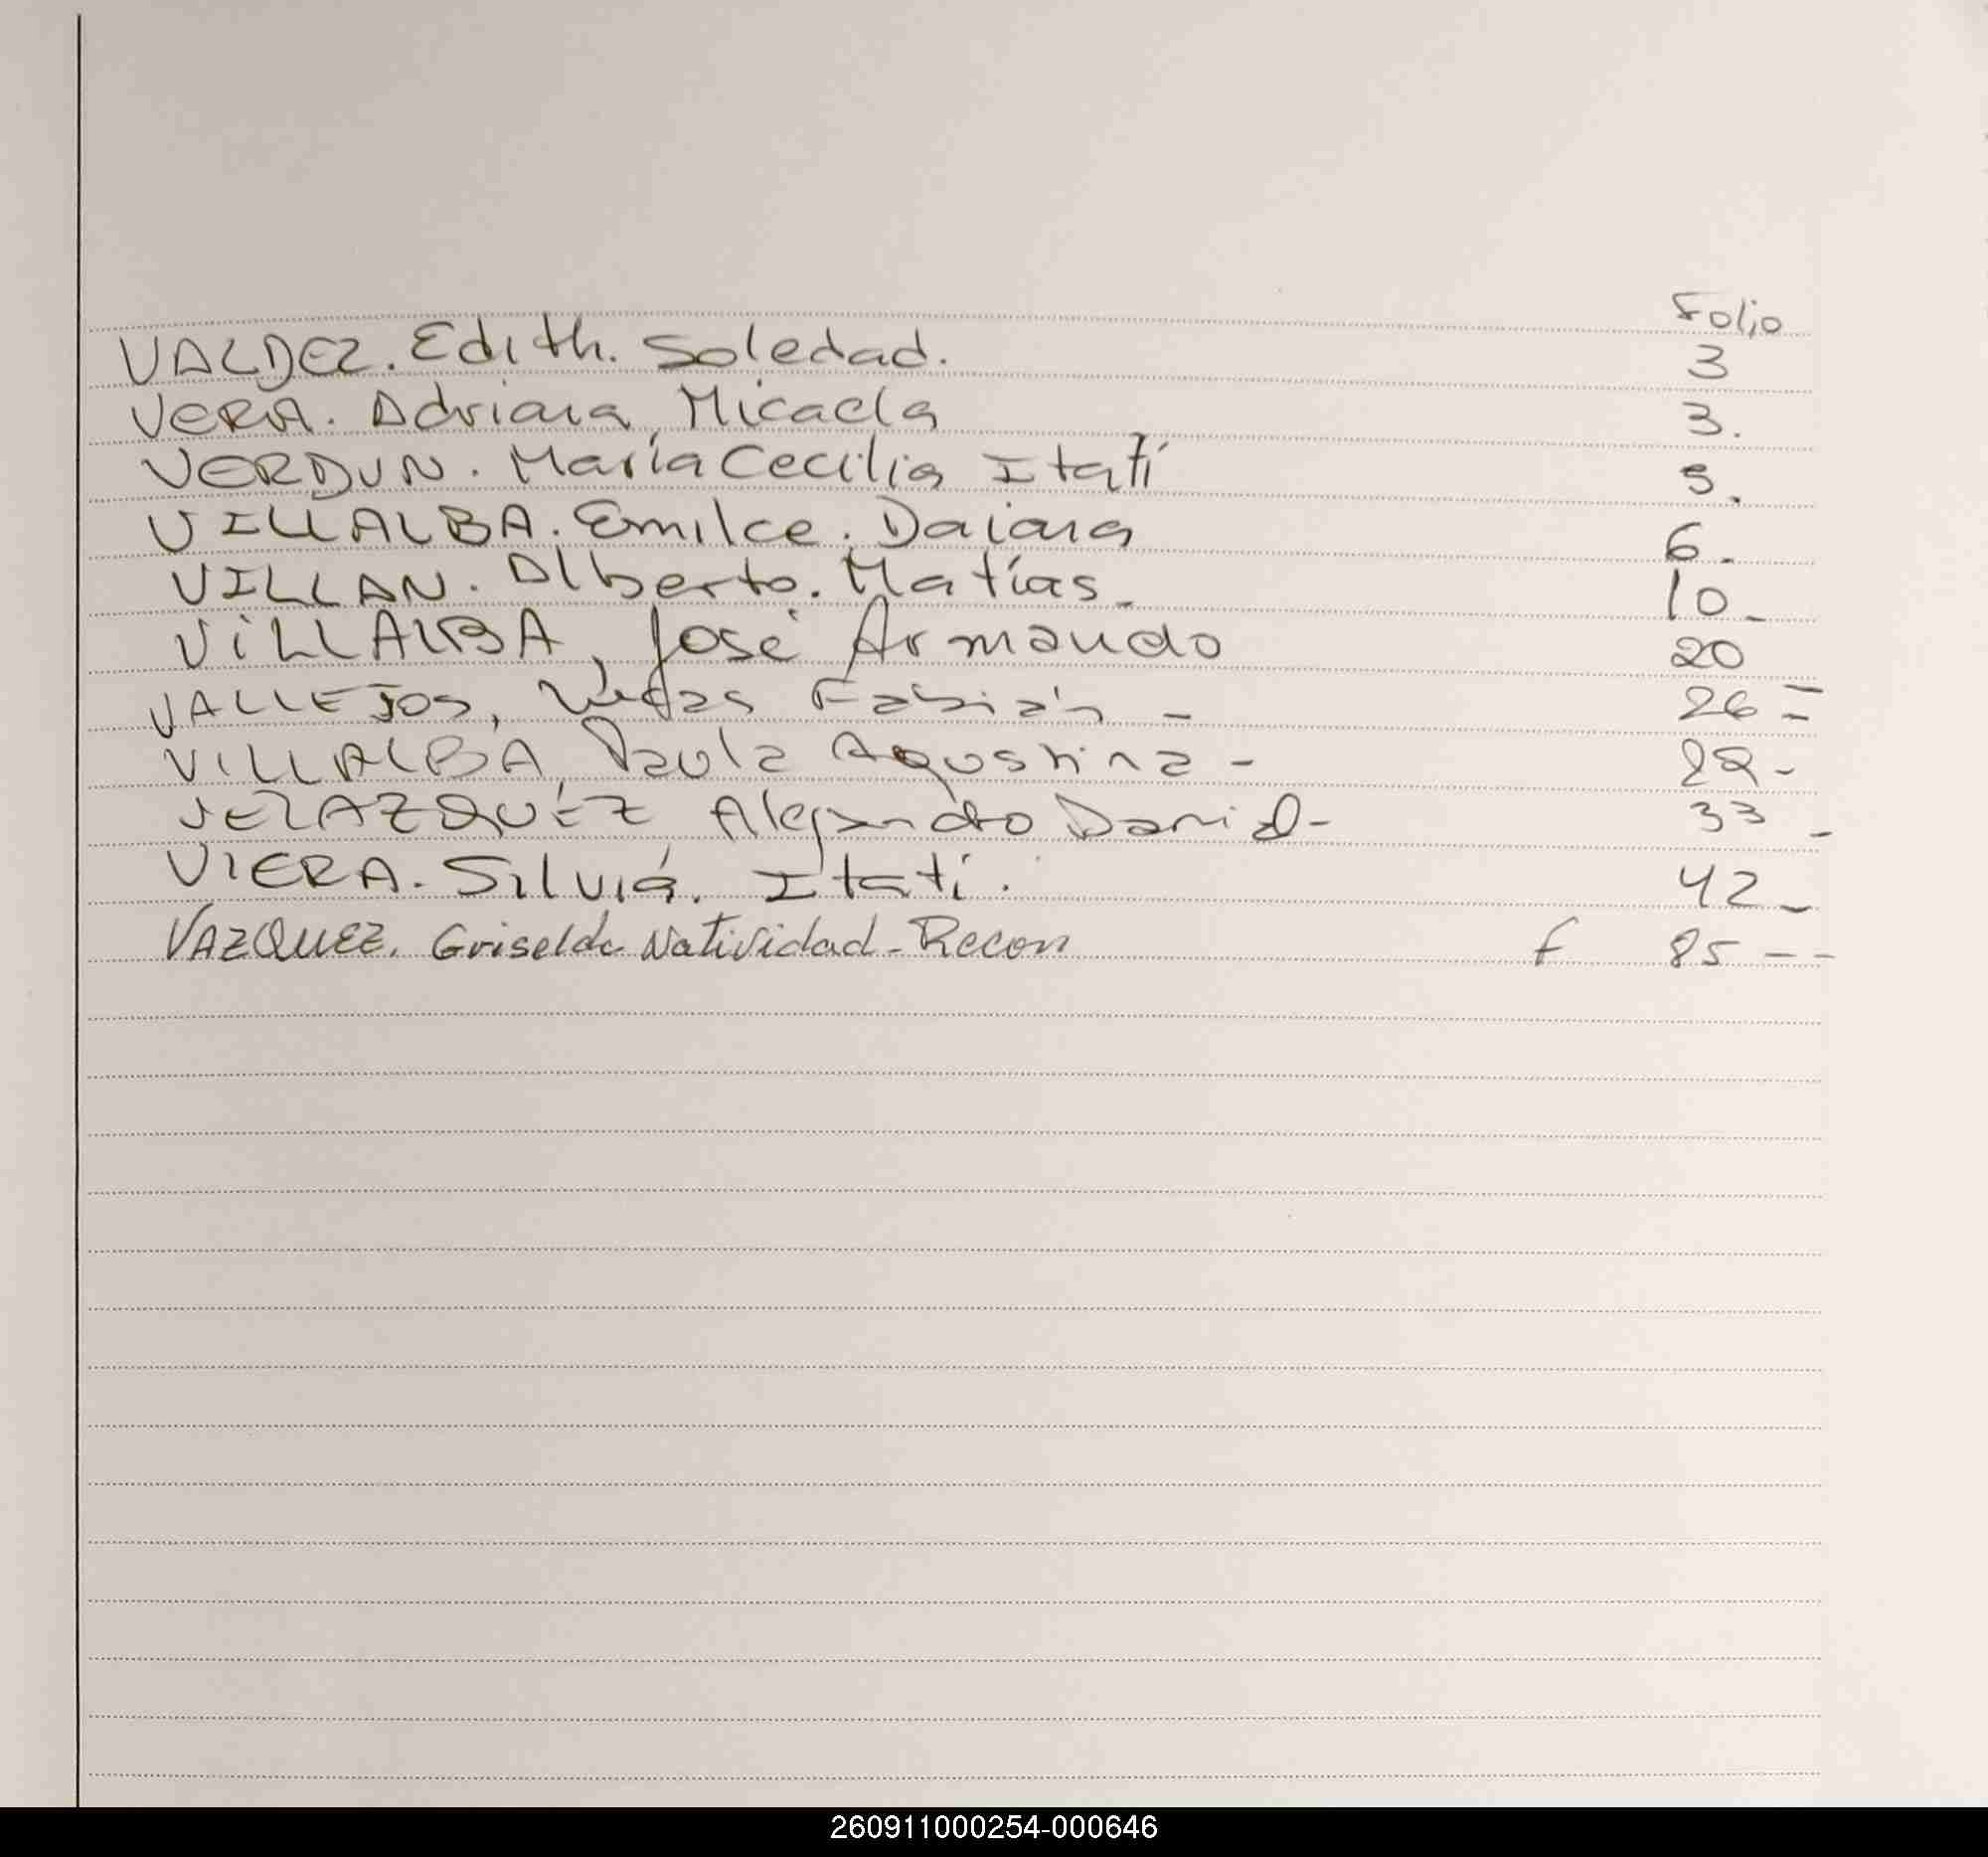 Folio
VALDEZ. Edith. Soledad. 3
VERA. Adriana, Micaela 3.
VERDUN. María Cecilia Itatí 5.
VILLALBA. Emilce. Daiana 6.-
VILLAN. Alberto. Matías.- 10.-
VILLALBA, José Armando 20
VALLEJOS, Fabián - 26 =
VILLALBA, Paula Agustina - 29-
VELAZQUÉZ Alejandro Daniel- 33 -
VIERA. Silvia. Itatí. 42 -
VAZQUEZ. Griselda Natividad - Recon f 85 --
260911000254-000646